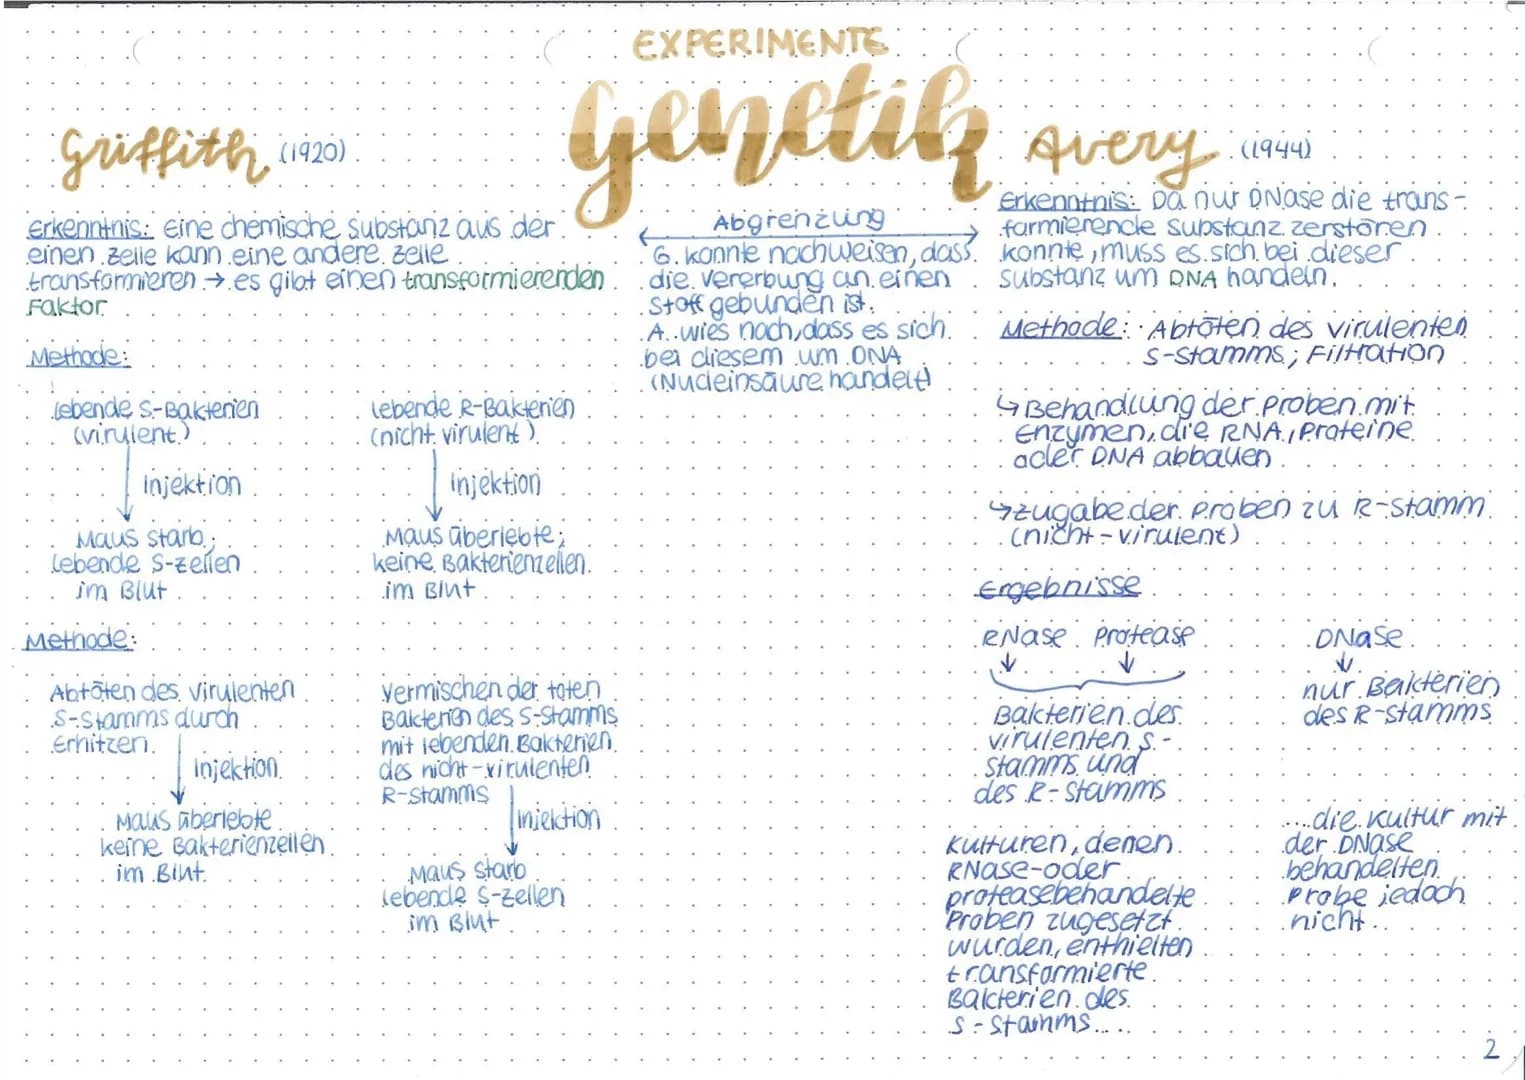 EXPERIMENTE
Genetik
Griffith (1920)
Erkenntnis: Eine chemische Substanz aus der
einen Zelle kann eine andere Zelle
transformieren → es gibt einen transformierenden
Faktor
Methode:
lebende S-Bakterien
(virulent)
Injektion
Maus starb;
lebende S-Zellen
im Blut
lebende R-Bakterien
(nicht virulent)
Injektion
Maus überlebte;
keine Bakterienzellen
im Blut
Methode:
Abtöten des virulenten
S-Stamms durch
Erhitzen
Injektion
Maus überlebte
keine Bakterienzellen
im Blut
Vermischen der toten
Bakterien des S-Stamms
mit lebenden Bakterien
des nicht-virulenten
R-Stamms
Injektion
Maus starb
lebende S-Zellen
im Blut
Abgrenzung
G. konnte nachweisen, dass
die Vererbung an einen
Stoff gebunden ist.
A. wies nach, dass es sich
bei diesem um DNA
(Nucleinsäure handelt)
Avery (1944)
Erkenntnis: Da nur DNase die trans-
formierende Substanz zerstören
konnte, muss es sich bei dieser
Substanz um DNA handeln.
Methode: · Abtöten des virulenten
S-Stamms; Filtration
↳ Behandlung der Proben mit
Enzymen, die RNA, Proteine
oder DNA abbauen
↳ Zugabe der Proben zu R-Stamm
(nicht-virulent)
Ergebnisse
RNase Protease
Bakterien des
virulenten S-
Stamms und
des R-Stamms
DNase
nur Bakterien
des R-Stamms
Kulturen, denen
RNase-oder
proteasebehandelte
Proben zugesetzt
wurden, enthielten
transformierte
Bakterien des
S-Stamms...
...die Kultur mit
der DNase
behandelten
Probe jedoch
nicht.
2